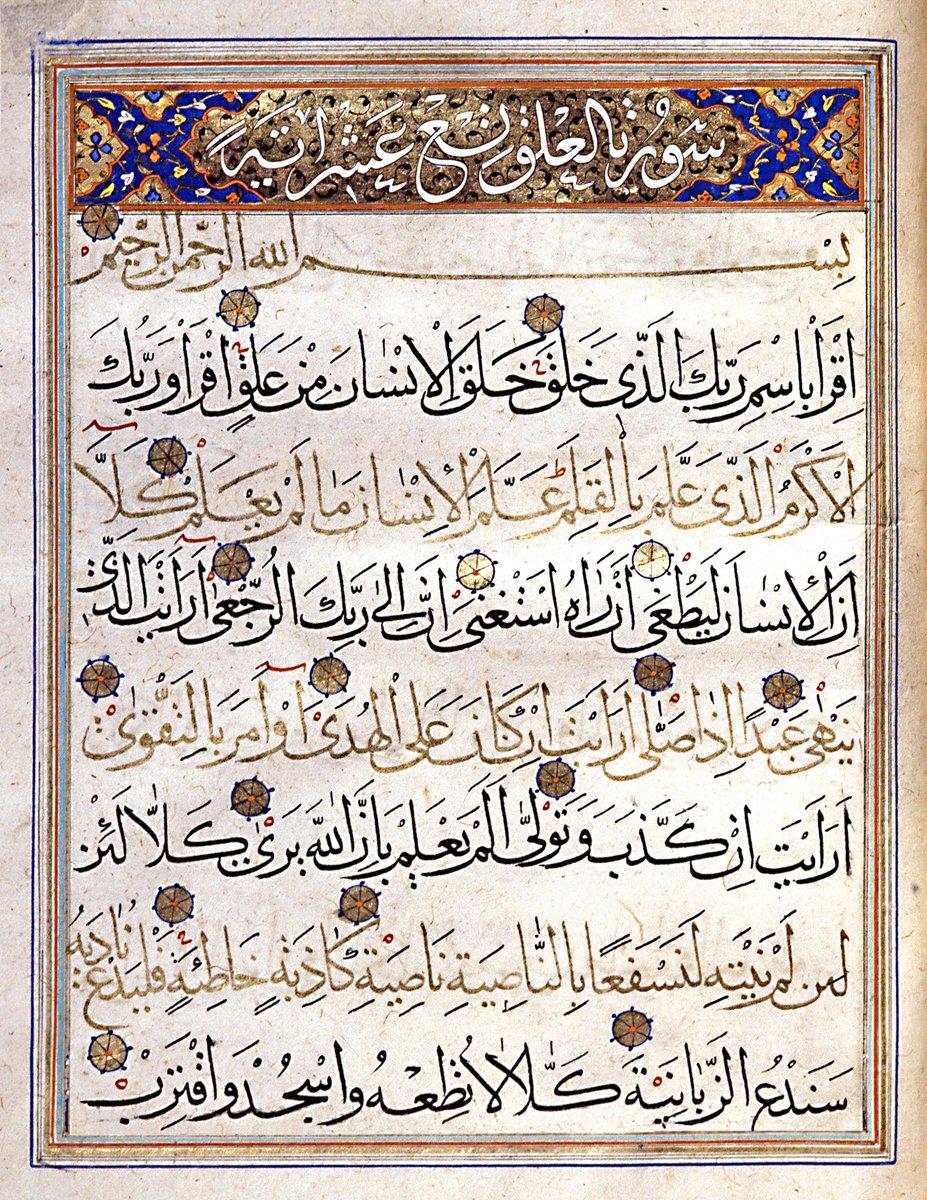 سورة العلق تسع عشر اية
بسم الله الرحمن الرحيم
اِقْرَأْ بِاسْمِ رَبِّكَ الَّذِي خَلَقَ خَلَقَ الْاِنْسَانَ مِنْ عَلَقٍ اِقْرَأْ وَرَبُّكَ
الْاَكْرَمُ الَّذِي عَلَّمَ بِالْقَلَمِ عَلَّمَ الْاِنْسَانَ مَا لَمْ يَعْلَمْ كَلَّا
اِنَّ الْاِنْسَانَ لَيَطْغَى اَنْ رَاٰهُ اسْتَغْنَى اِنَّ اِلَى رَبِّكَ الرُّجْعَى اَرَاَيْتَ الَّذِي
يَنْهَى عَبْدًا اِذَا صَلَّى اَرَاَيْتَ اِنْ كَانَ عَلَى الْهُدَى اَوْ اَمَرَ بِالتَّقْوَى
اَرَاَيْتَ اِنْ كَذَّبَ وَتَوَلَّى اَلَمْ يَعْلَمْ بِاَنَّ اللّٰهَ يَرَى كَلَّا لَئِنْ
لَئِن لَمْ يَنْتَهِ لَنَسْفَعًا بِالنَّاصِيَةِ نَاصِيَةٍ كَاذِبَةٍ خَاطِئَةٍ فَلْيَدْعُ نَادِيَهُ
سَنَدْعُ الزَّبَانِيَةَ كَلَّا لَا تُطِعْهُ وَاسْجُدْ وَاقْتَرِبْ